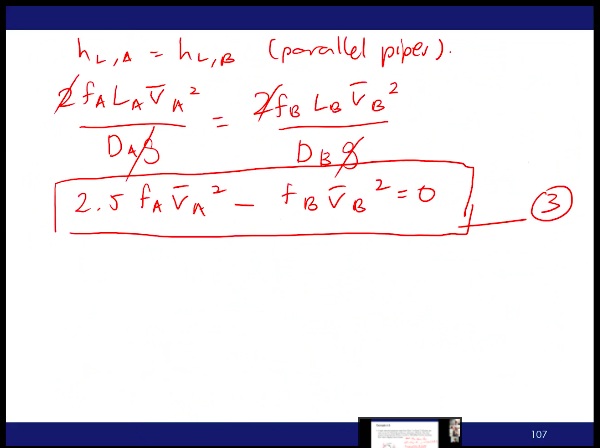 h_L,A = h_L,B (parallel pipes).
2 f_A L_A V̄_A² / D_A g = 2 f_B L_B V̄_B² / D_B g
2.5 f_A V̄_A² - f_B V̄_B² = 0
3
107